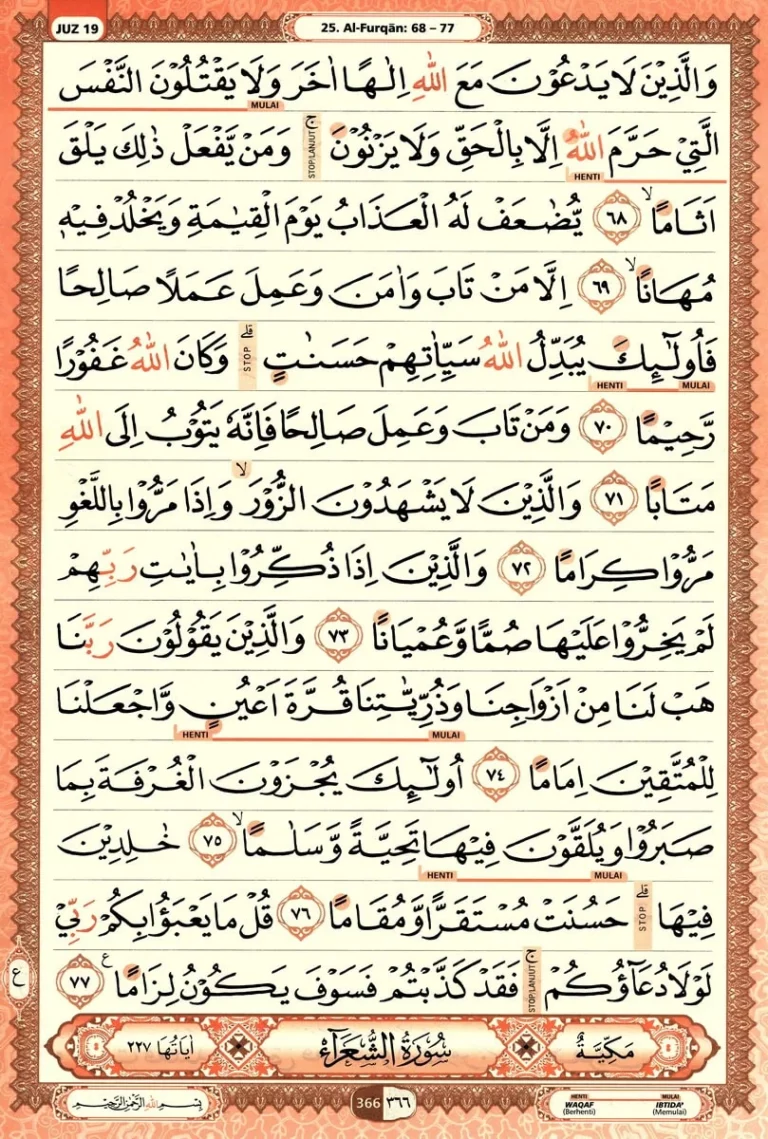 JUZ 19
25. Al-Furqān: 68 – 77
وَالَّذِيْنَ لَا يَدْعُوْنَ مَعَ اللّٰهِ اِلٰهًا اٰخَرَ وَلَا يَقْتُلُوْنَ النَّفْسَ
MULAI
الَّتِيْ حَرَّمَ اللّٰهُ اِلَّا بِالْحَقِّ وَلَا يَزْنُوْنَ ۚ وَمَنْ يَّفْعَلْ ذٰلِكَ يَلْقَ
STOP/LANJUT
HENTI
اَثَامًا ۙ ٦٨ يُّضٰعَفْ لَهُ الْعَذَابُ يَوْمَ الْقِيٰمَةِ وَيَخْلُدْ فِيْهٖ
مُهَانًا ۙ ٦٩ اِلَّا مَنْ تَابَ وَاٰمَنَ وَعَمِلَ عَمَلًا صَالِحًا
فَاُولٰۤىِٕكَ يُبَدِّلُ اللّٰهُ سَيِّاٰتِهِمْ حَسَنٰتٍ ۗ وَكَانَ اللّٰهُ غَفُوْرًا
STOP
HENTI MULAI
رَّحِيْمًا ٧٠ وَمَنْ تَابَ وَعَمِلَ صَالِحًا فَاِنَّهٗ يَتُوْبُ اِلَى اللّٰهِ
مَتَابًا ٧١ وَالَّذِيْنَ لَا يَشْهَدُوْنَ الزُّوْرَۙ وَاِذَا مَرُّوْا بِاللَّغْوِ
مَرُّوْا كِرَامًا ٧٢ وَالَّذِيْنَ اِذَا ذُكِّرُوْا بِاٰيٰتِ رَبِّهِمْ
لَمْ يَخِرُّوْا عَلَيْهَا صُمًّا وَّعُمْيَانًا ٧٣ وَالَّذِيْنَ يَقُوْلُوْنَ رَبَّنَا
هَبْ لَنَا مِنْ اَزْوَاجِنَا وَذُرِّيّٰتِنَا قُرَّةَ اَعْيُنٍ وَّاجْعَلْنَا
HENTI MULAI
لِلْمُتَّقِيْنَ اِمَامًا ٧٤ اُولٰۤىِٕكَ يُجْزَوْنَ الْغُرْفَةَ بِمَا
صَبَرُوْا وَيُلَقَّوْنَ فِيْهَا تَحِيَّةً وَّسَلٰمًا ۙ ٧٥ خٰلِدِيْنَ
HENTI MULAI
فِيْهَا ۗ حَسُنَتْ مُسْتَقَرًّا وَّمُقَامًا ٧٦ قُلْ مَا يَعْبَؤُا بِكُمْ رَبِّيْ
STOP
لَوْلَا دُعَاۤؤُكُمْ ۚ فَقَدْ كَذَّبْتُمْ فَسَوْفَ يَكُوْنُ لِزَامًا ࣖ ٧٧
STOP/LANJUT
ع
مَكِّيَّةٌ سُوْرَةُ الشُّعَرَاۤءِ اٰيَاتُهَا ٢٢٧
بِسْمِ اللّٰهِ الرَّحْمٰنِ الرَّحِيْمِ
366 ٣٦٦
HENTI MULAI
WAQAF IBTIDA'
(Berhenti) (Memulai)